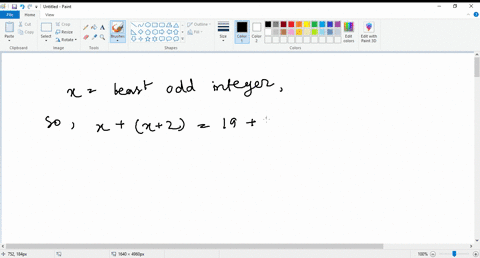 Untitled - Paint
File Home View
Paste Cut Copy Select Crop Resize Rotate Brushes Shapes Outline Fill Size Color 1 Color 2 Edit colors Edit with Paint 3D
Clipboard Image Tools Shapes Colors
x = least odd integer,
So, x + (x+2) = 19 +
792, 184px 1640 × 4860px 100%